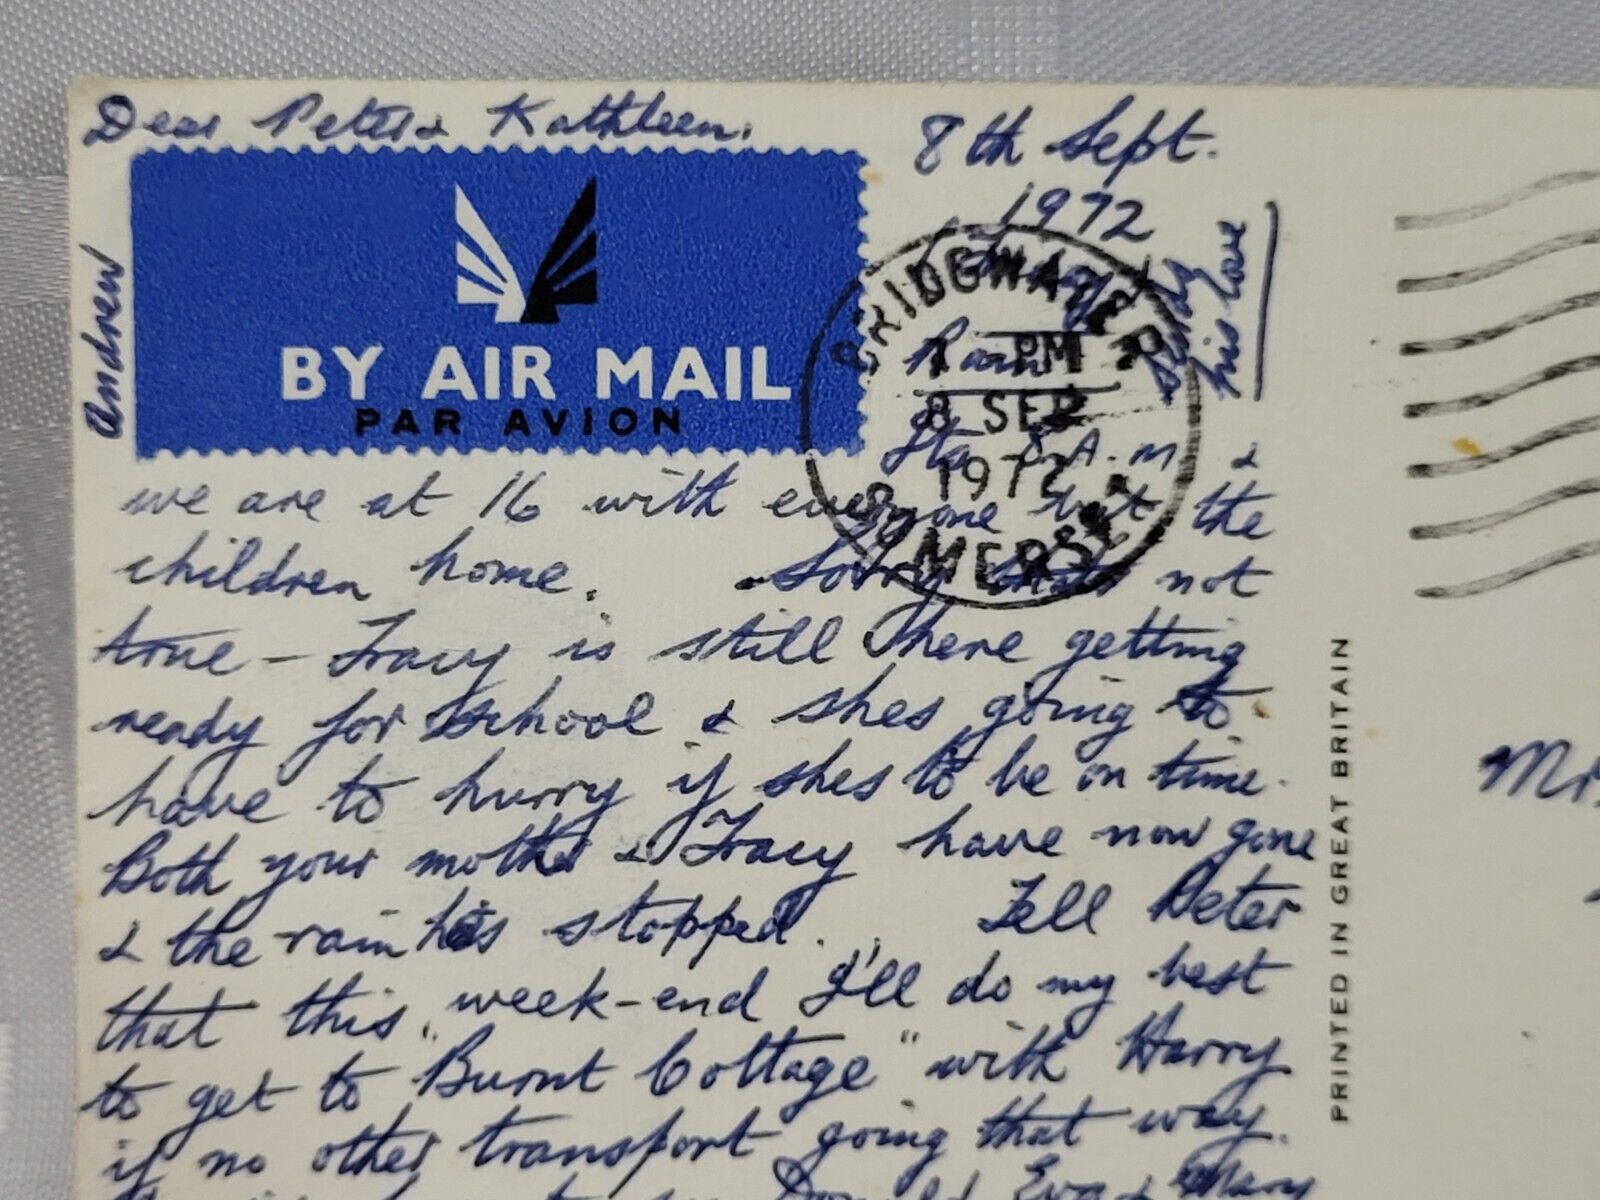 Dear Peter & Kathleen.
8th Sept.
1972
Andrew
his love
BY AIR MAIL
PAR AVION
BRIDGWATER
PM
8 SEP
1972
SOMERSET
Rain
Its 8 A.M &
we are at 16 with everyone but the
children home. Sorry thats not
true - Tracy is still here getting
ready for school & shes going to
have to hurry if shes to be on time.
Both your mother & Tracy have now gone
& the rain has stopped. Tell Peter
that this week-end I'll do my best
to get to "Burnt Cottage" with Harry
if no other transport going that way.
Donald Eva & Mary
PRINTED IN GREAT BRITAIN